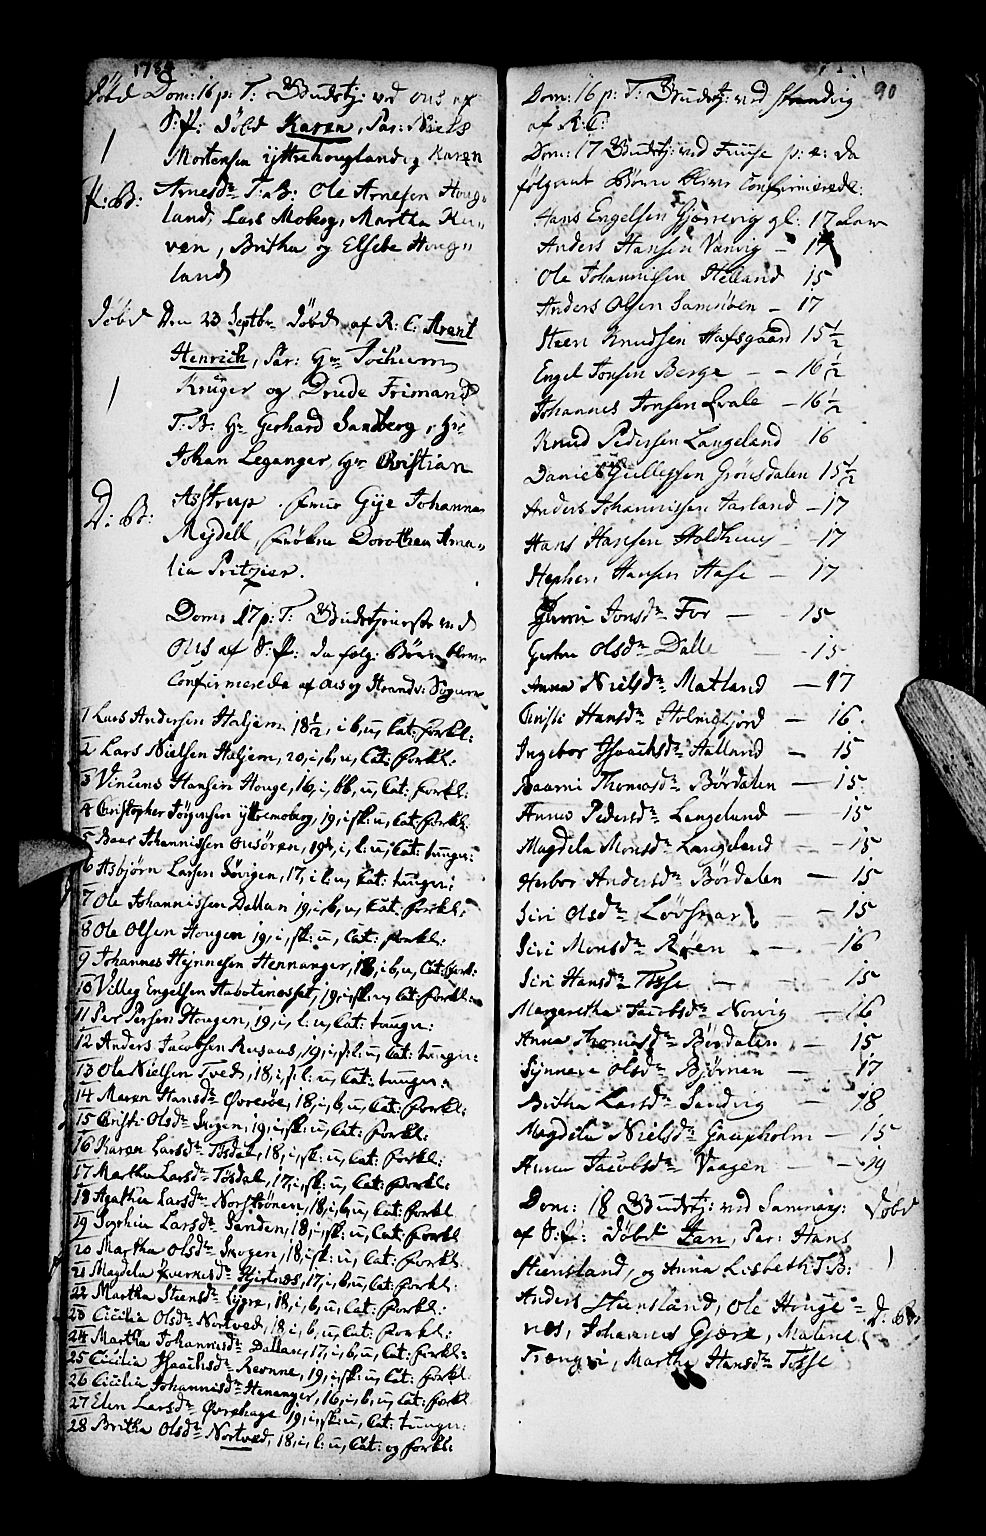 1784
Døbd Dom: 16 p: T: Gudstj: ved Ous af
S: P: Døbd Karen, Par: Niels
1 Mortensen yttrehougland og Karen
P: B: Arnesdr T: B: Ole Arnesen Houg-
land, Lars Moberg, Martha
ven, Britha og Elsebe Houg-
land
Døbd Den 23 Septbr Døbd af R: C: Arent
Henrich, Par: Hr Jochum
1 Krüger og Drude Frimand
T: B: Hr Gerhard Sandberg, Hr
Johan Leganger, Hr Christian
D: B: Asstrup Gije Johanna
Mejdell, frøken Dorothea Ama-
lia Pritzier.
Dom: 17 p: T: Gudstjeneste ved
Ous af S: P: da følg: Børn bleve
Confirmerede af Ous og Strandv: Sogne
1 Lars Andersen Haljem 18 1/2, i b, u, Cat: forkl:
2 Lars Nielsen Haljem, 20, i, b, u, Cat: forkl:
3 Vincens Hansen Houge, 16, i, bk, u, Cat: forkl:
4 Christopher Jørgensen yttremoberg, 19, i sk: u, Cat: forkl:
5 Baar Johannissen Ousøren, 19, i, l: u, Cat: tungn:
6 Asbjørn Larsen Søvigen, 17, i l: u, Cat: tungn:
7 Ole Johannissen Dallan 19, i, b, u, Cat: forkl:
8 Ole Olsen Hougen 19, i, sk: u, Cat: forkl:
9 Johannes Hejnnesen Hennanger, 18, i b, u, Cat: forkl:
10 Villeg Engelsen Aabotenosset, 19, i sk: u, Cat: forkl:
11 Per Persen Hougen, 19, i, l: u, Cat: tungn:
12 Anders Jacobsen Rusaas, 19, i, sl: u, Cat: tungn:
13 Ole Nielsen Tved, 18, i, sl: u, Cat: tungn:
14 Maren Hansdr Øvreøe, 18, i, b, u, Cat: forkl:
15 Christi Olsdr Skogen, 19, i, sk: u, Cat: forkl:
16 Karen Larsdr Tøsdal, 18, i, sk: u, Cat: forkl:
17 Martha Larsdr Tøsdal, 17, i, sk: u, Cat: forkl:
18 Agatha Larsdr Norstrønen, 18, i, b, u, Cat: forkl
19 Sophia Larsdr Sanden, 18, i, sk: u, Cat: forkl:
20 Martha Olsdr Skogen, 18, i sk: u, Cat: forkl:
21 Magdela Hjertnes, 17, i, b, u, Cat: forkl:
22 Martha Steensdr Lygre, 18, i, b, u, Cat: forkl:
23 Cicilia Olsdr Nortved, 18 i, b, u, Cat: forkl:
24 Martha Johannisdr Dallan, 17, i, b, u, Cat: forkl:
25 Cicilia Isaachsdr Revnne, 19, i, sk: u, Cat: forkl:
26 Cicilia Johannisdr Henanger, 16, i, b, u, Cat: forkl
27 Elen Larsdr Øvrehage 19, i, sk: u, Cat: tungn:
28 Britha Olsdr Nortved, 18, i, l: u, Cat: og forkl:
90
Dom: 16 p: T: Gudstj: ved Strandvig
af R: C:
Dom: 17 Gudstj: ved Fuuse p: e: da
følgende Børn bleve Confirmerede:
Hans Engelsen Gjerrevig gl: 17 aar
Anders Hansen Vænvig - 17
Ole Johannissen Helland 15
Anders Olsen Samsøen - 17
Steen Knudsen Hafsgaard 15 1/2
Engel Jonsen Berge - - 16 1/2
Johannes Jonsen Qvale - 16 1/2
Knud Pedersen Langeland 16
Daniel Gullegsen Grønsdalen 15 1/2
Anders Johannissen Aarland - 17
Hans Hansen Holdhuus - 17
Stephen Hansen Hafse - 17
Guuri Jonsdr For - 15
Gertru Olsdr Dalle - 15
Anna Nielsdr Matland - 17
Christi Hansdr Holmefjord - 16.
Ingebor Isaachsdr Halland - 15
Baarni Thomasdr Børdalen - 15
Anna Pedersdr Langeland - 15
Magdela Monsdr Langeland - 15
Herbor Andersdr Børdalen - 15
Siri Olsdr - - 15
Siri Monsdr Røen - - 16
Siri Hansdr Tøsse - - 15
Margaretha Jacobsdr Novig - 16
Anna Thomasdr Børdalen - 15
Synneve Olsdr Bjørnen - 17
Britha Larsdr Sandvig - 18
Magdela Nielsdr Gnapholm - 15
Anna Jacobsdr Vaagen - - 19
Dom: 18 Gudstj: ved Samnøy: Døbd
af S: P: Døbd Jan, Par: Hans
Steensland, og Anna Lisbeth T: B: 1
Anders Steensland, Ole Houge- D: B:
nes, Johannes Gjære, Malene
Trengri, Martha Hansdr Tøsse